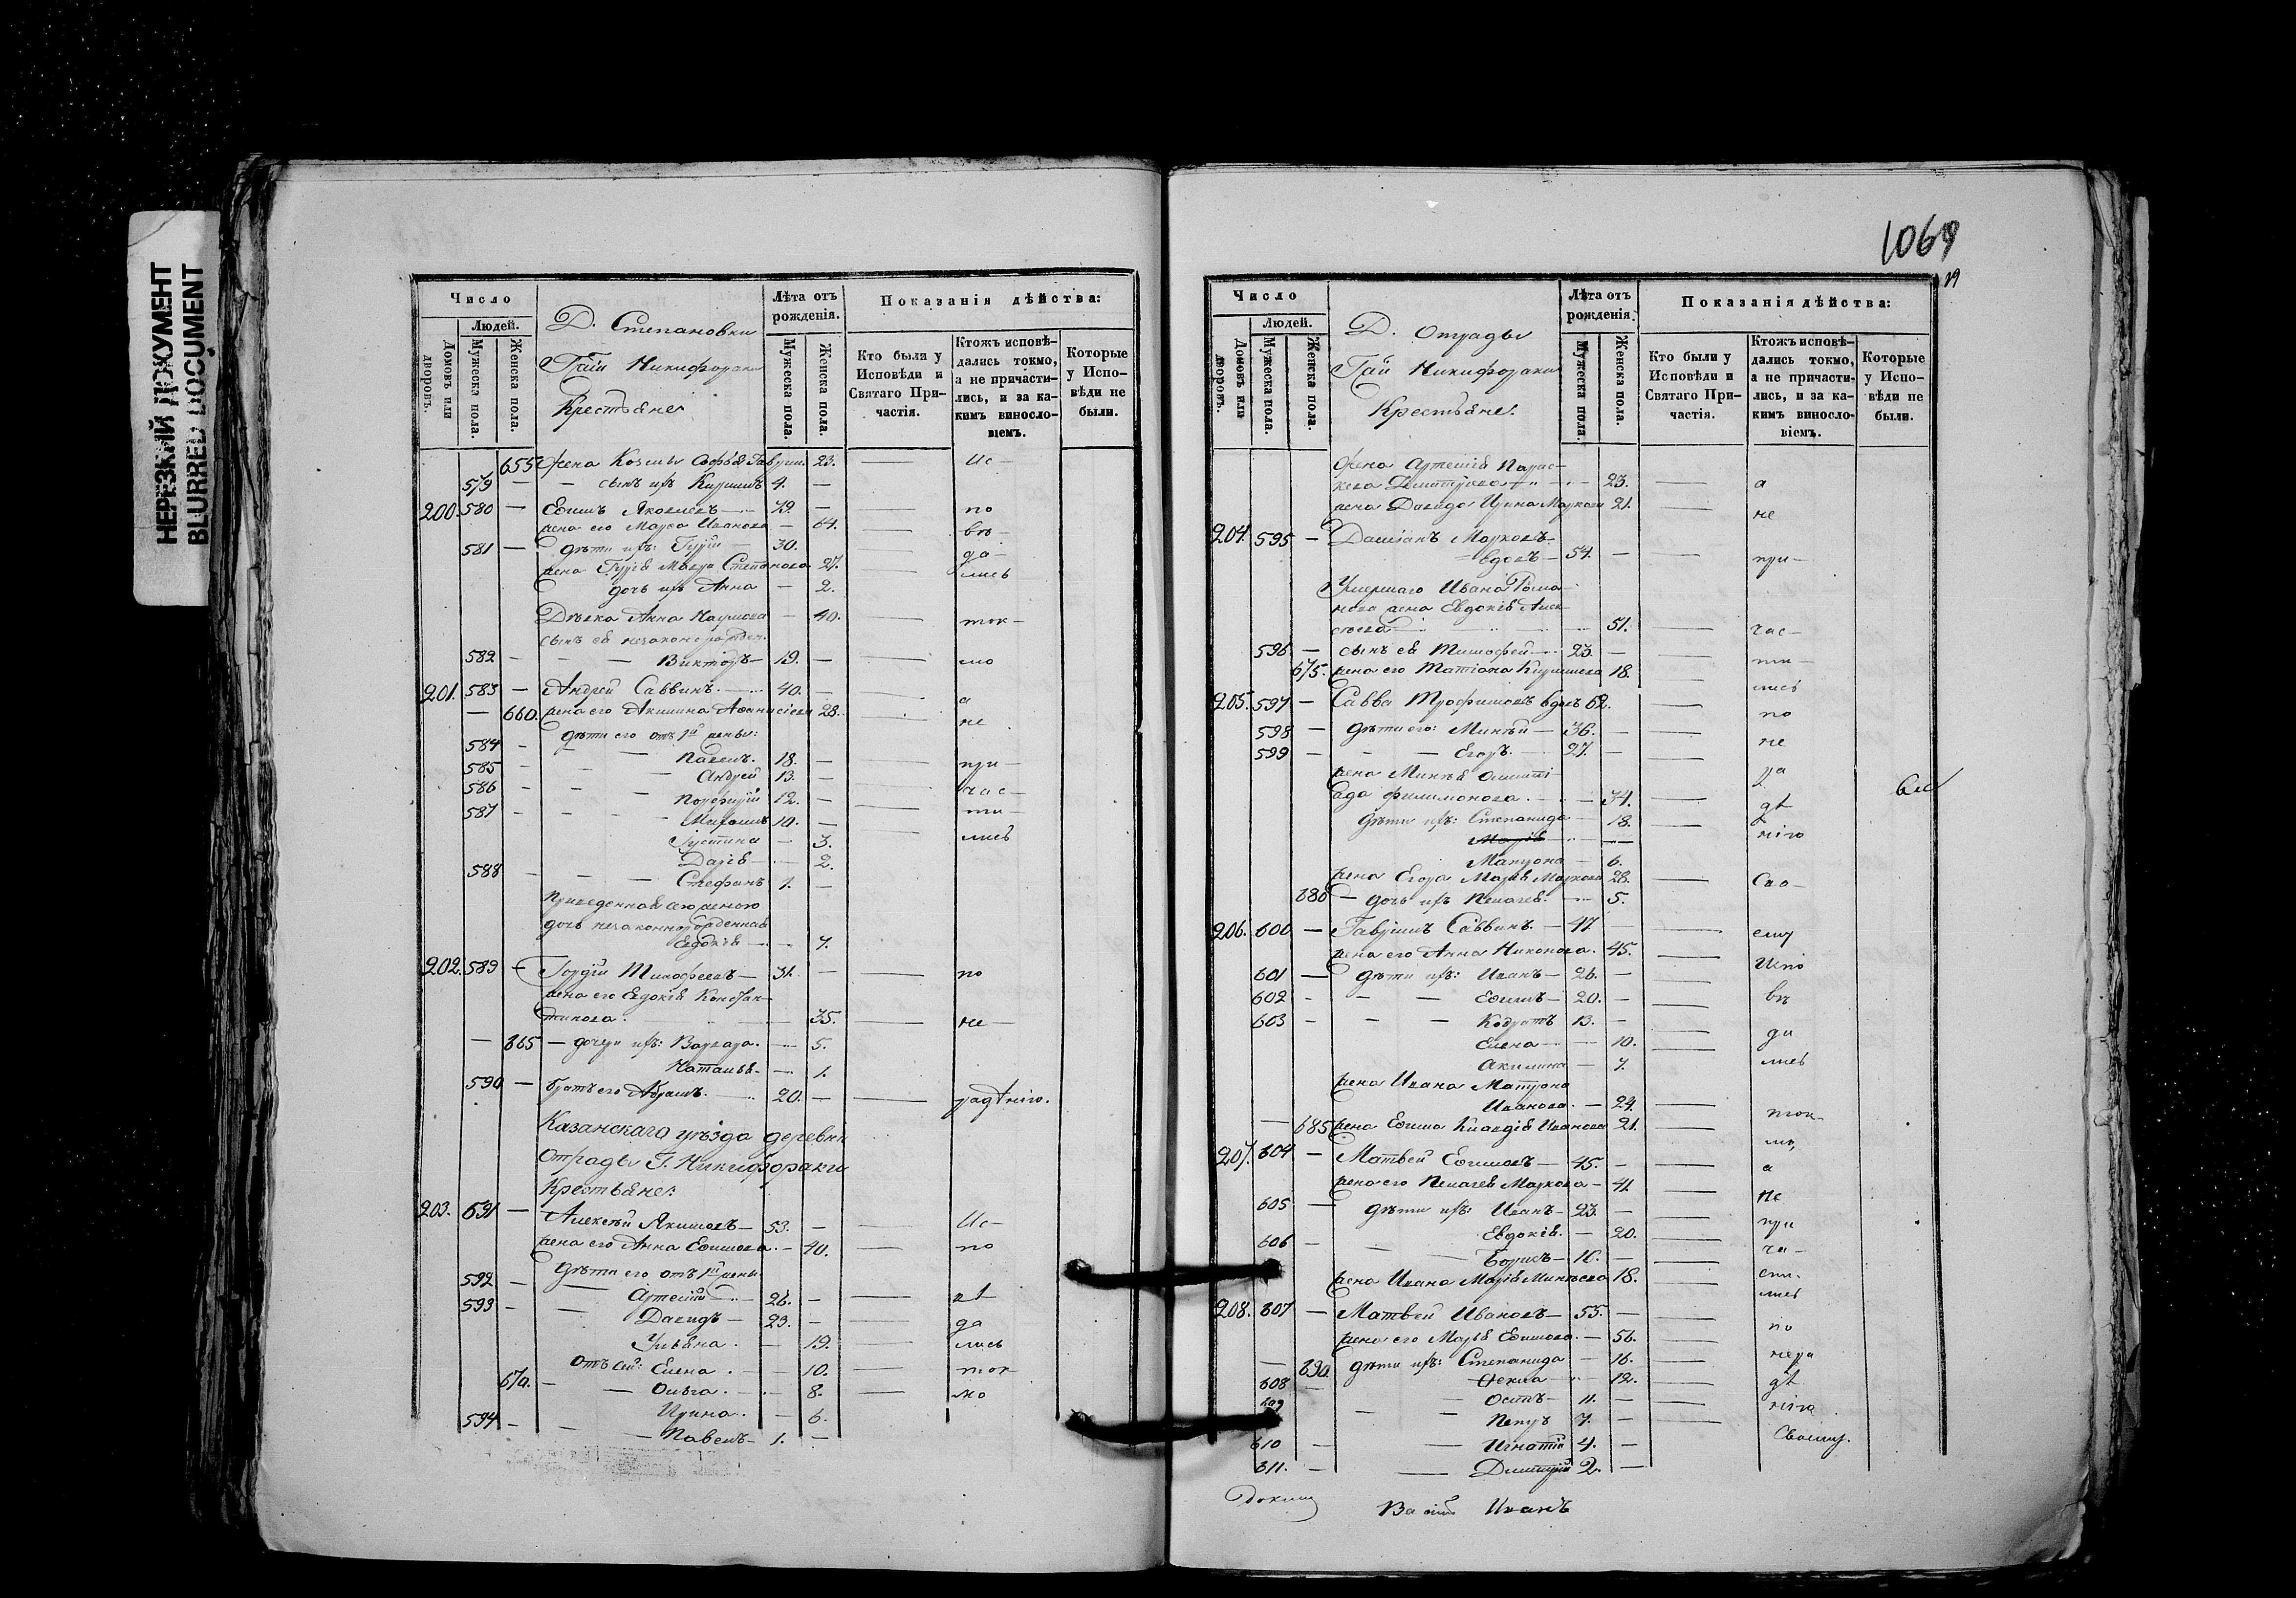 НЕРЕЗКИЙ ДОКУМЕНТ
BLURRED DOCUMENT
Число
Людей.
Домовъ или дворовъ.
Мужеска пола.
Женска пола.
Д. Степановки
Крестьяне:
Лѣта отъ рожденія.
Мужеска пола.
Женска пола.
Показанія дѣйства:
Кто были у Исповѣди и Святаго Причастія.
Ктожъ исповѣ-
дались токмо,
а не причасти-
лись, и за ка-
кимъ винносло-
віемъ.
Которые
у Испо-
вѣди не
были.
655 жена Козьмы Софья 23. Ис
579 — сынъ ихъ 4. —
200. 580 — Ефимъ Яковлевъ — по
жена его Марѳа Иванова — 64. вѣ
581 — дѣти ихъ: Гурій — 30. да
жена Гурія Степанова 27. лись
дочь ихъ Анна — 2.
Дѣвка Анна Наумова — 40. ток
сынъ ея незаконорожден.
582 — Викторъ — 19. — мо
201. 583 — Андрей Саввинъ. 40. — а
— 660. жена его Акилина 28. не
дѣти его отъ 1й жены:
584 — Павелъ. 18. — при
585 — Андрей 13. —
586 — Порфирій 12. — час
587 — 10. — ти
Іустина — 3. лись
Дарья — 2.
588 — Стефанъ 1. —
Приведенная его женою
дочь незаконнорожденная
Евдокія — 7.
202. 589 — Гордій Тимофеевъ — — по
жена его Евдокія Констан-
тинова. 35. не
— 665 — дочери ихъ: Варвара. 5.
Наталья — 1.
590 — братъ его Абрамъ. 20. — радѣнію.
Казанскаго уѣзда деревни
Отрады Г. Никифораки
Крестьяне:
203. 591 — Алексѣй Якимовъ — 53. — Ис
жена его Анна Ефимова. — 40. по
дѣти его отъ 1й жены
592 — Артемій 26. — вѣ
593 — Давидъ — 23. — да
Ульяна. — 19. лись
отъ сей: Елена. — 10. ток
670. — Ольга. — 8. мо
Ирина. — 6.
594 — Павелъ — 1. —
1069
Число
Людей.
Домовъ или дворовъ.
Мужеска пола.
Женска пола.
Д. Отрады
Крестьяне:
Лѣта отъ рожденія.
Мужеска пола.
Женска пола.
Показанія дѣйства:
Кто были у Исповѣди и Святаго Причастія.
Ктожъ исповѣ-
дались токмо,
а не причасти-
лись, и за ка-
кимъ винносло-
віемъ.
Которые
у Испо-
вѣди не
были.
жена Артемія Парас-
кева Димитріева 23. а
жена Давида Ирина Маркова 21. не
204. 595 — Даміанъ Марковъ
вдовъ — 54. — при
Умершаго Ивана Рома-
нова жена Евдокія Алек-
сѣева 51. час
596 — сынъ ея Тимофей — 23. — ти
675. жена его Татіана 18. лись
205. 597 — Савва Трофимовъ вдовъ 62. по
598 — дѣти его: Минѣй — 36. — не
599 — Егоръ. 27. — ра
жена Минѣя Олимпі-
ада Филимонова. — 34. дѣ
дѣти ихъ: Степанида — 18. нію
Матрона — 6.
жена Егора Марья Маркова 28. Сво
680 — дочь ихъ Пелагея. 5.
206. 600 — Гавріилъ Саввинъ. — 47 — ему
жена его Анна Никонова. 45. Испо
601 — дѣти ихъ: Иванъ — 26. —
602 — Ефимъ — 20. — вѣ
603 — Кодратъ 13. — да
Елена — 10.
Акилина — 7. лись
жена Ивана Матрона
Иванова. — 24. ток
— 685 жена Ефима Клавдія Иванова 21. мо,
207. 604 — Матвей Ефимовъ — 45. — а
жена его Пелагея Маркова — 41 не
605 — дѣти ихъ: Иванъ — 23. — при
Евдокія. — 20. ча
606 — Борисъ — 16. — сти.
жена Ивана Марья Минѣева 18. лись
208. 607 — Матвей Ивановъ — 55. — по
жена его Марья Ефимова. — 56. нера
— 690. дѣти ихъ: Степанида — 16. дѣ
Ѳекла — 12. нію
608 — Осипъ — 11. —
609 — Петръ 7. — Своему.
610 — Игнатій 4. —
611. — Димитрій 2. —
Иванъ